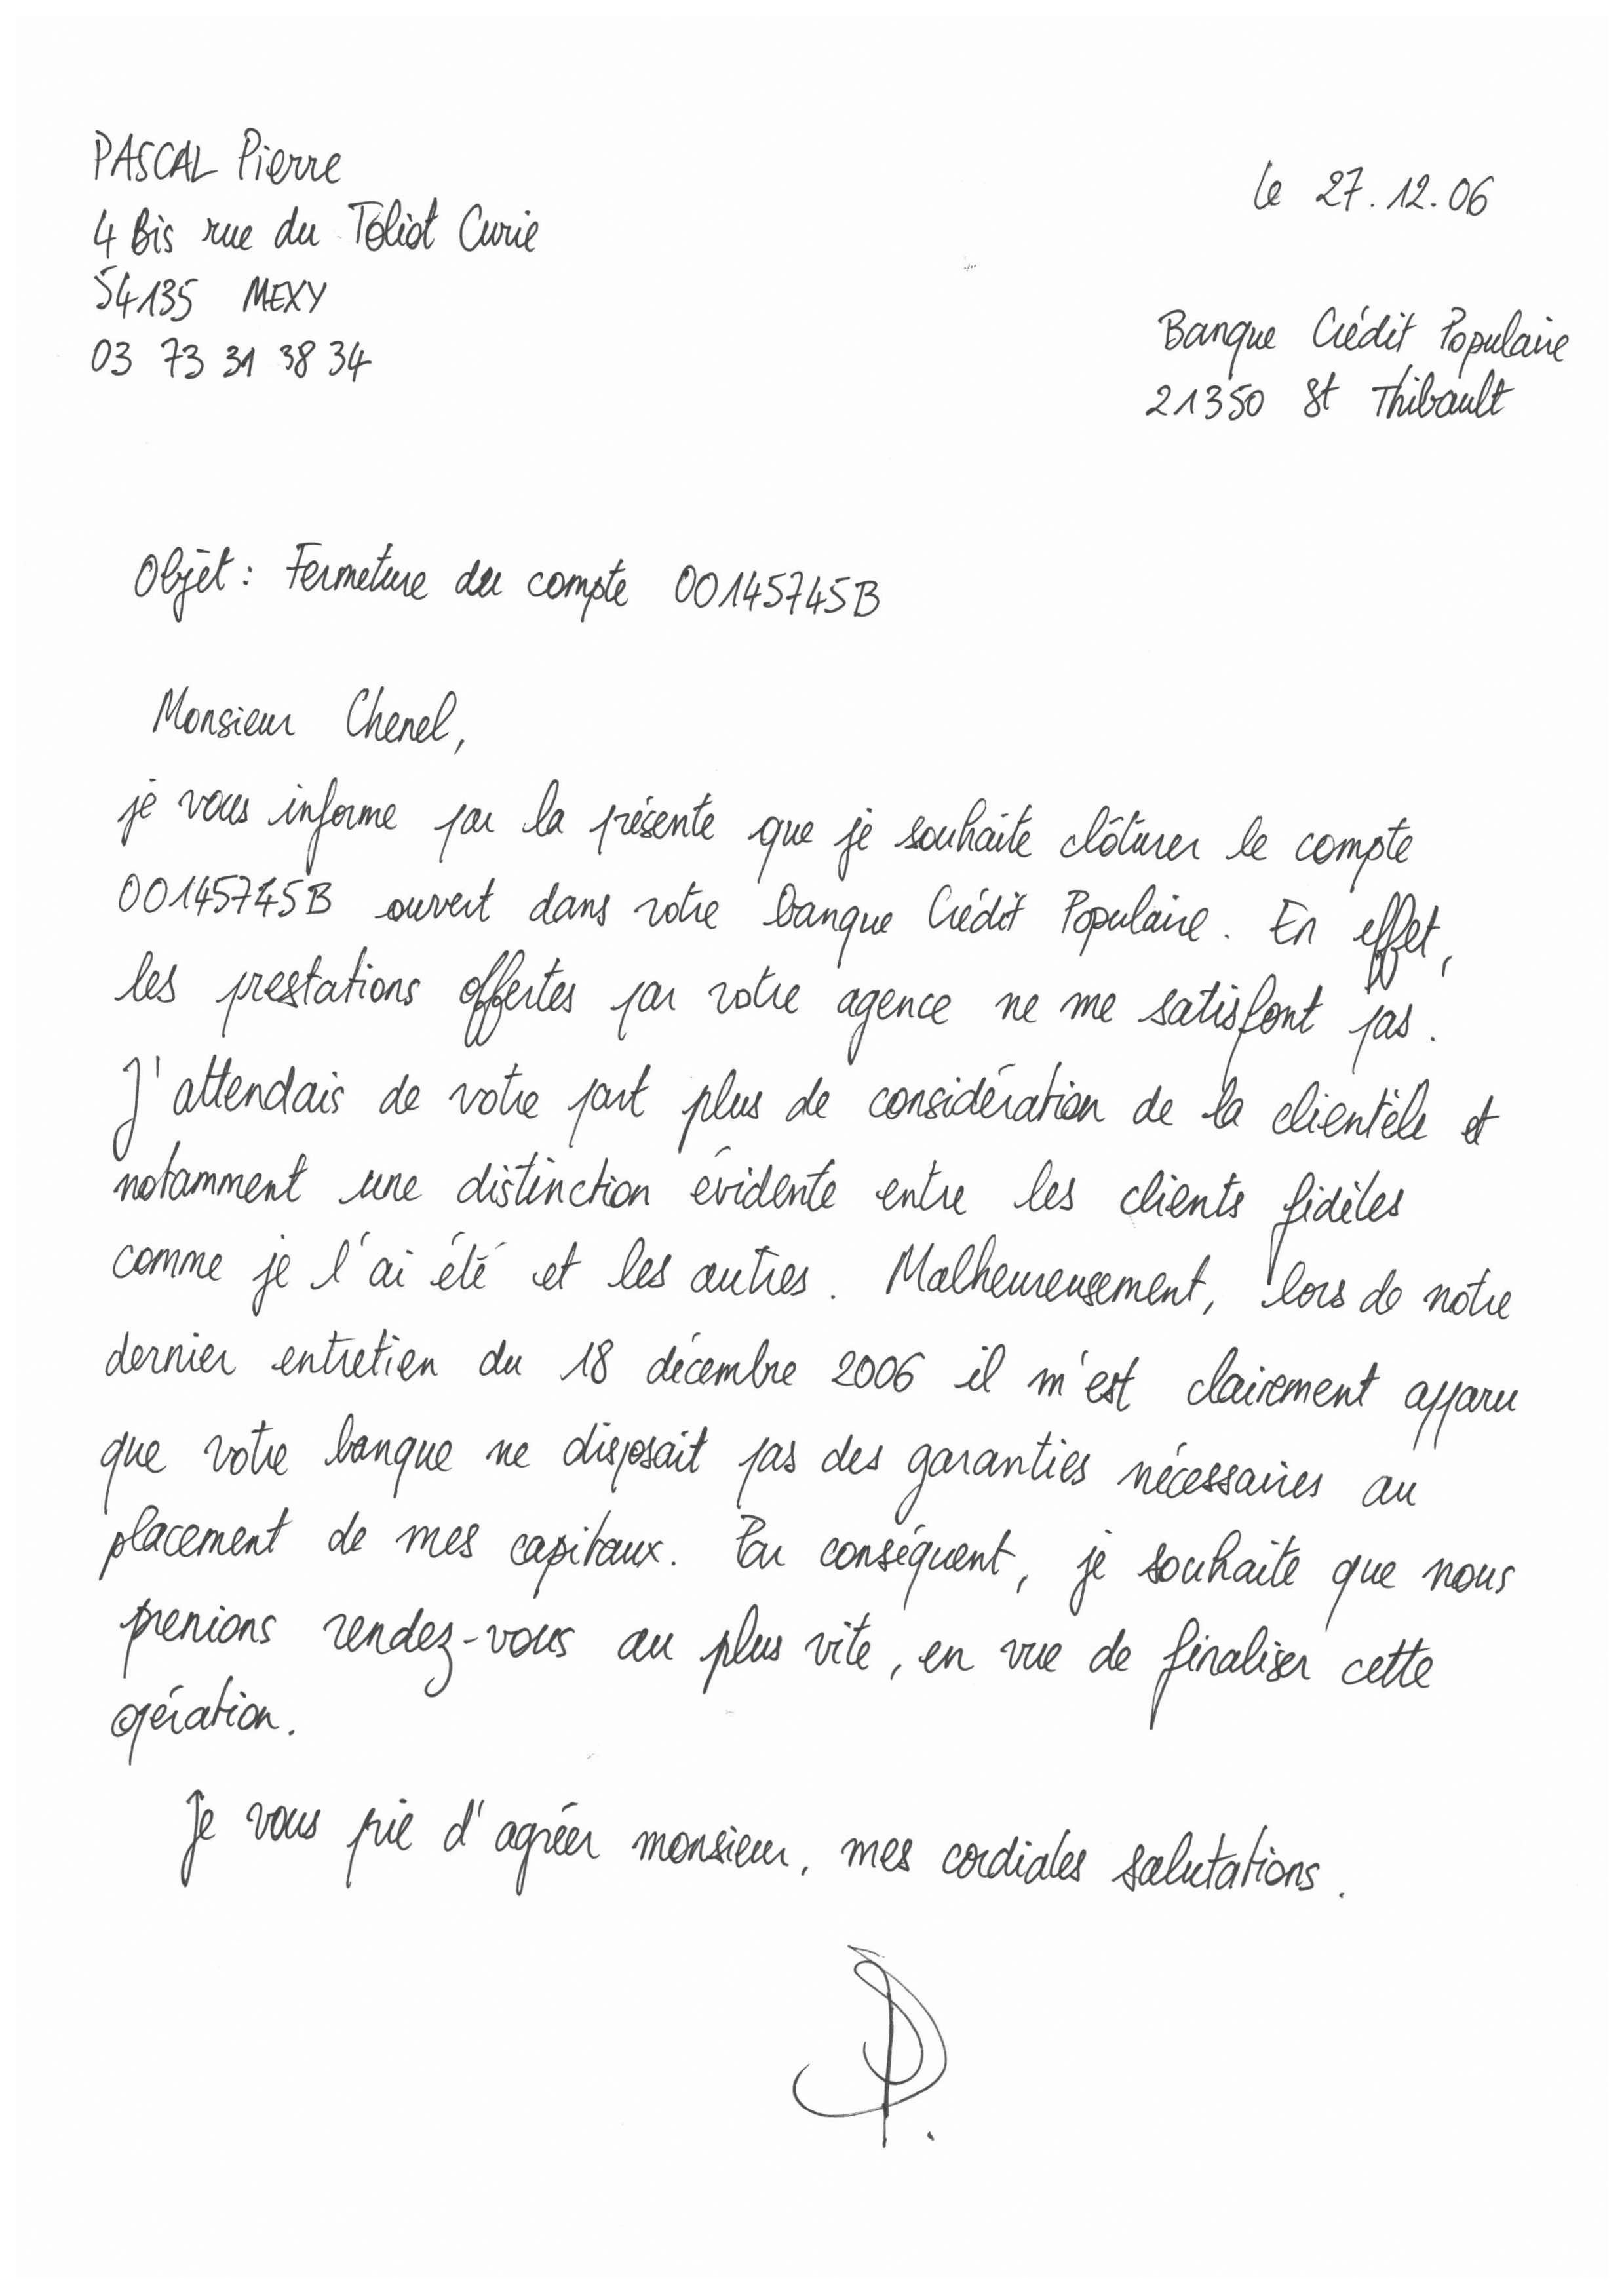 PASCAL Pierre
le 27.12.06
4 Bis rue du Toliot Curie
54135 MEXY
03 73 31 38 34
Banque Crédit Populaire
21350 St Thibault
Objet : Fermeture du compte 00145745B
Monsieur Chenel,
je vous informe par la présente que je souhaite clôturer le compte
00145745B ouvert dans votre banque Crédit Populaire. En effet,
les prestations offertes par votre agence ne me satisfont pas.
J'attendais de votre part plus de considération de la clientèle et
notamment une distinction évidente entre les clients fidèles
comme je l'ai été et les autres. Malheureusement, lors de notre
dernier entretien du 18 décembre 2006 il m'est clairement apparu
que votre banque ne disposait pas des garanties nécessaires au
placement de mes capitaux. Par conséquent, je souhaite que nous
prenions rendez-vous au plus vite, en vue de finaliser cette
opération.
Je vous prie d'agréer monsieur, mes cordiales salutations.